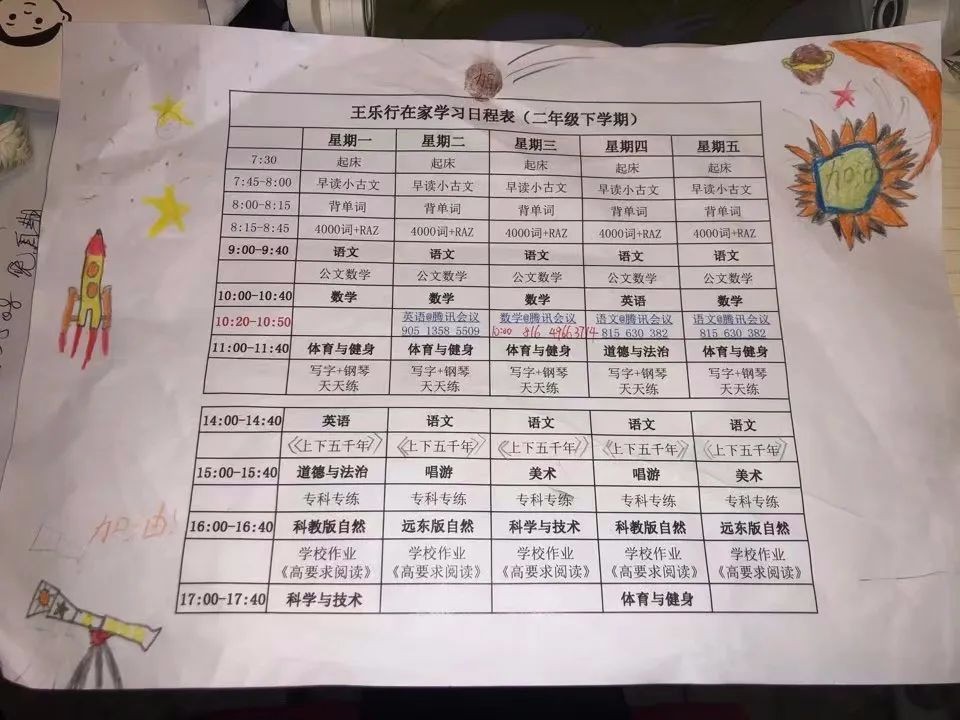 王乐行在家学习日程表（二年级下学期）
星期一 星期二 星期三 星期四 星期五
7:30 起床 起床 起床 起床 起床
7:45-8:00 早读小古文 早读小古文 早读小古文 早读小古文 早读小古文
8:00-8:15 背单词 背单词 背单词 背单词 背单词
8:15-8:45 4000词+RAZ 4000词+RAZ 4000词+RAZ 4000词+RAZ 4000词+RAZ
9:00-9:40 语文 语文 语文 语文 语文
公文数学 公文数学 公文数学 公文数学 公文数学
10:00-10:40 数学 数学 数学 英语 数学
10:20-10:50 英语@腾讯会议 数学@腾讯会议 语文@腾讯会议 语文@腾讯会议
905 1358 5509 10:00 816 4966 3714 815 630 382 815 630 382
11:00-11:40 体育与健身 体育与健身 体育与健身 道德与法治 体育与健身
写字+钢琴 写字+钢琴 写字+钢琴 写字+钢琴 写字+钢琴
天天练 天天练 天天练 天天练 天天练
14:00-14:40 英语 语文 语文 语文 语文
《上下五千年》 《上下五千年》 《上下五千年》 《上下五千年》 《上下五千年》
15:00-15:40 道德与法治 唱游 美术 唱游 美术
专科专练 专科专练 专科专练 专科专练 专科专练
16:00-16:40 科教版自然 远东版自然 科学与技术 科教版自然 远东版自然
学校作业 学校作业 学校作业 学校作业 学校作业
《高要求阅读》 《高要求阅读》 《高要求阅读》 《高要求阅读》 《高要求阅读》
17:00-17:40 科学与技术 体育与健身
加油!